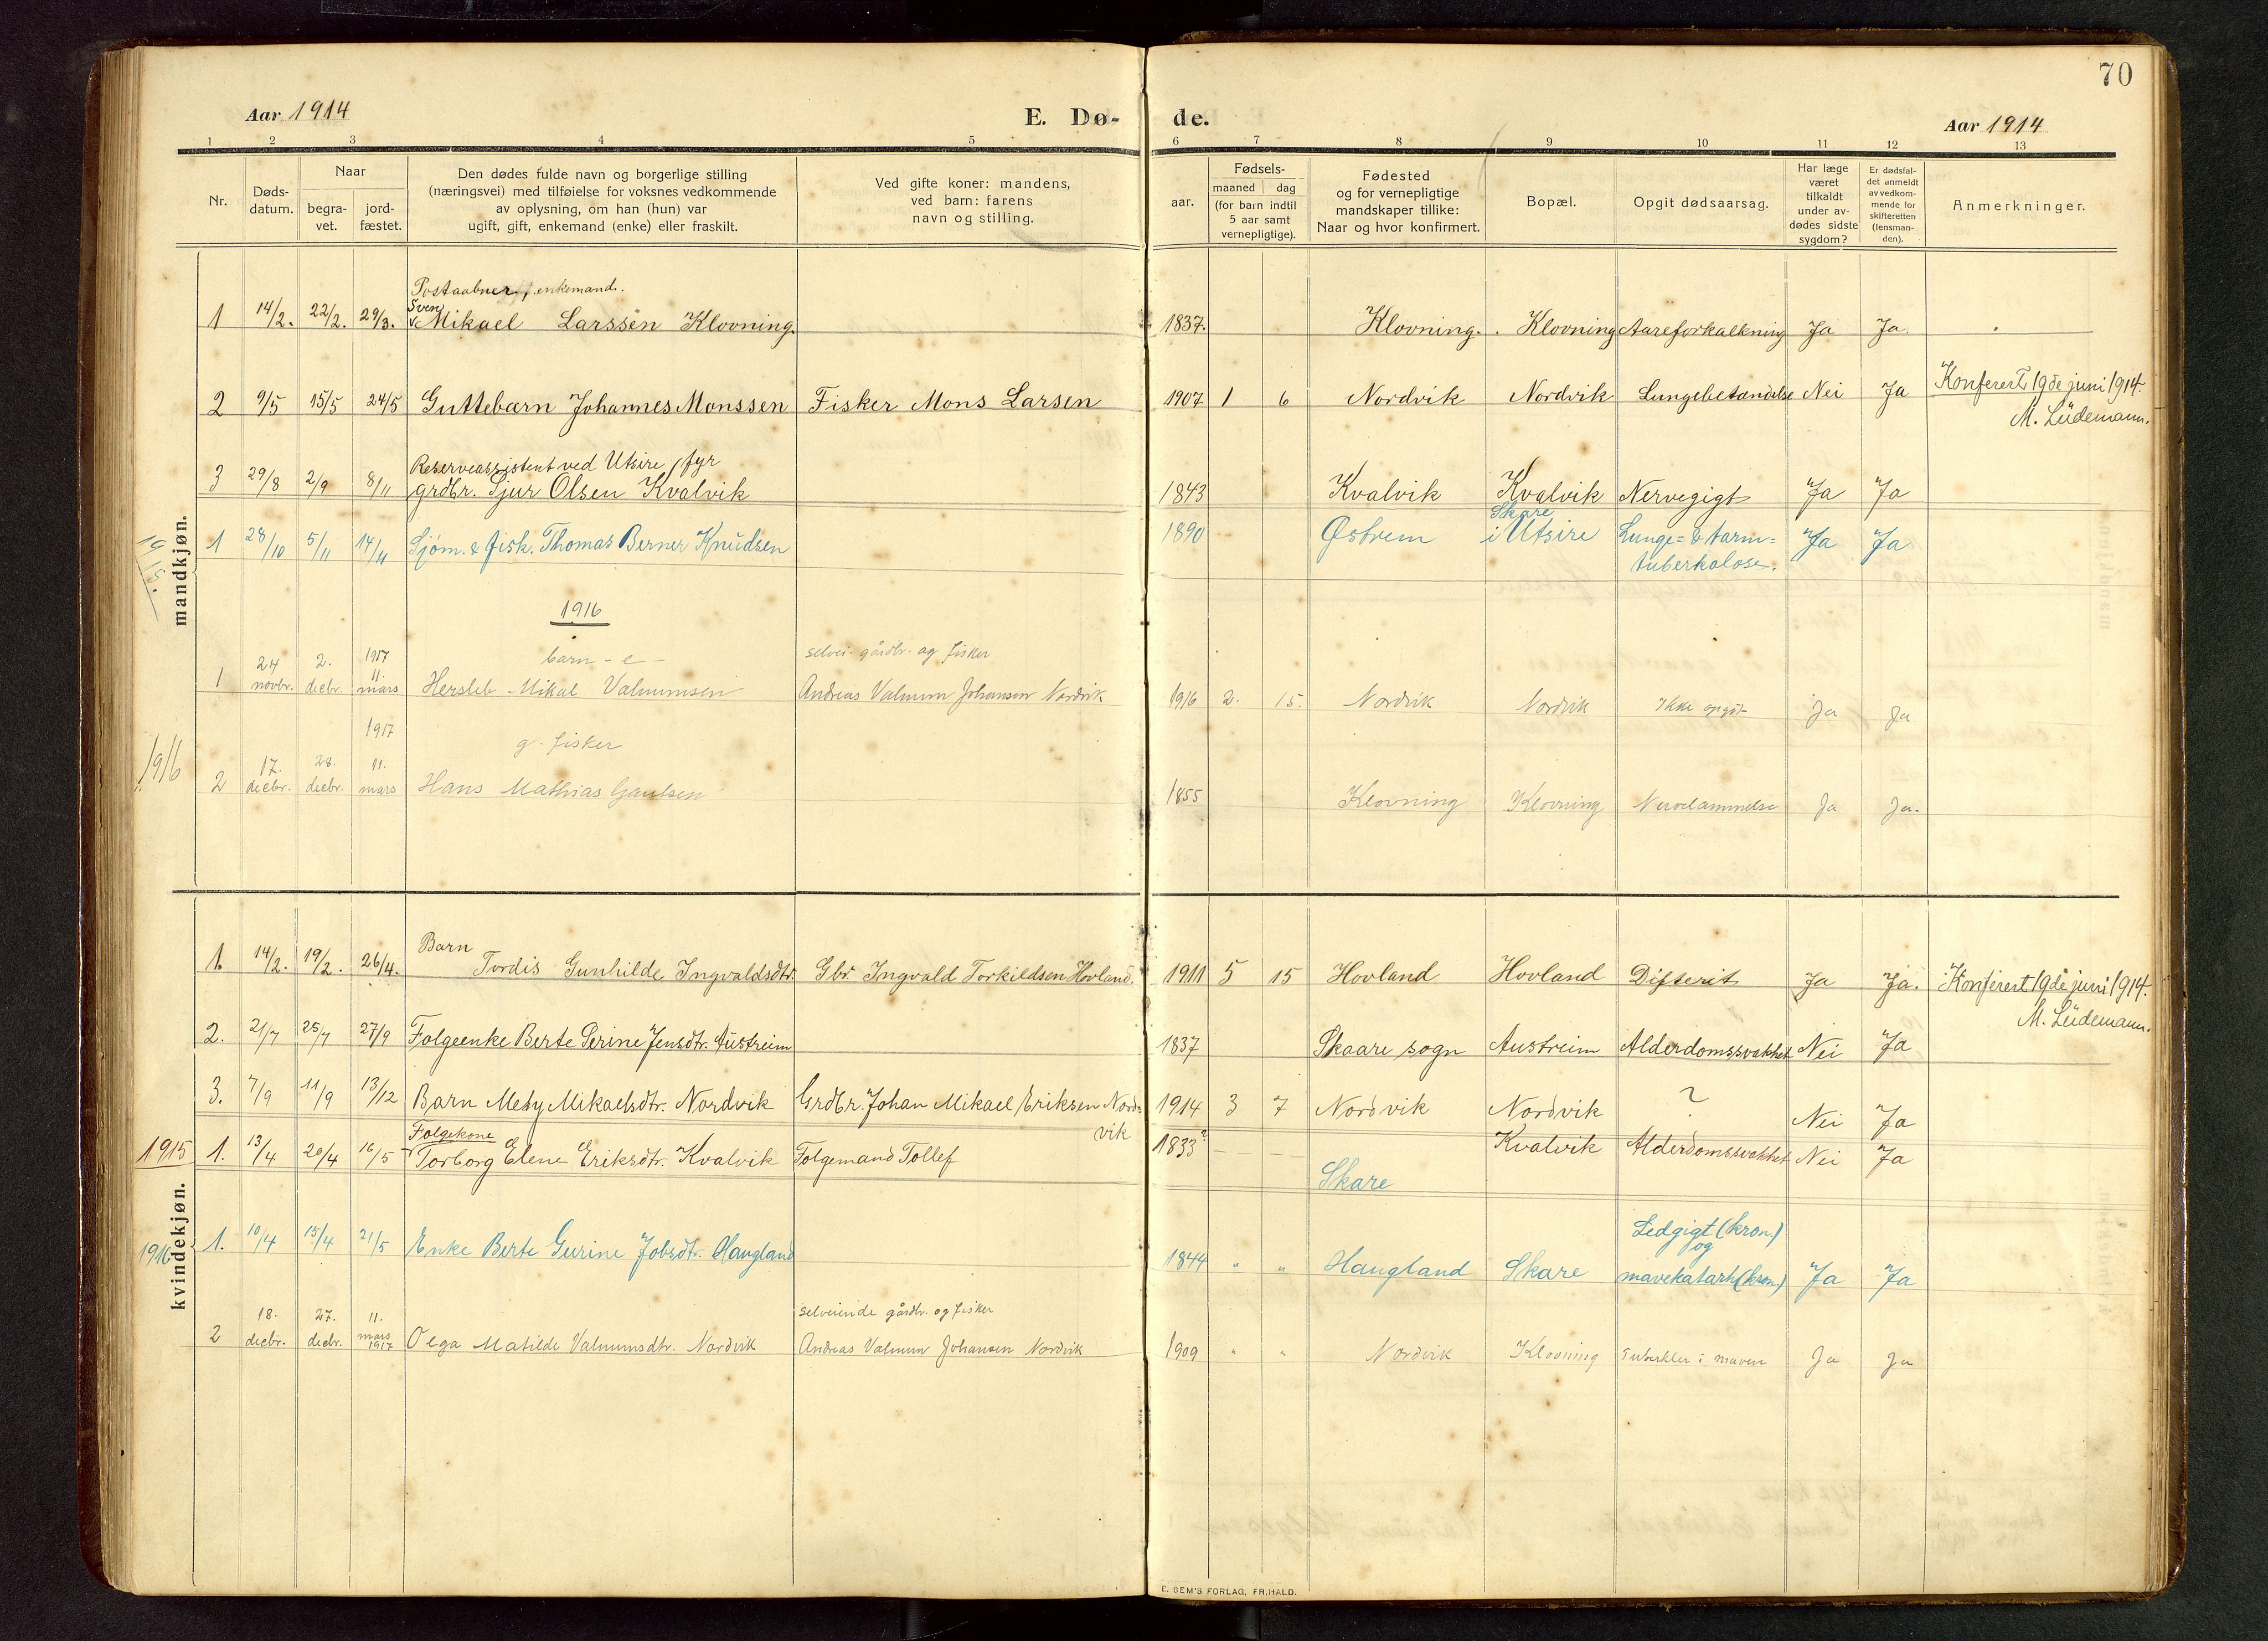 70
Aar 1914 E. Dø- de. Aar 1914
1 2 3 4 5 6 7 8 9 10 11 12 13
Nr.
Døds-
datum.
Naar
begra-
vet.
jord-
fæstet.
Den dødes fulde navn og borgerlige stilling
(næringsvei) med tilføielse for voksnes vedkommende
av oplysning, om han (hun) var
ugift, gift, enkemand (enke) eller fraskilt.
Ved gifte koner: mandens,
ved barn: farens
navn og stilling.
aar.
Fødsels-
maaned | dag
(for barn indtil
5 aar samt
vernepligtige).
Fødested
og for vernepligtige
mandskaper tillike:
Naar og hvor konfirmert.
Bopæl.
Opgit dødsaarsag.
Har læge
været
tilkaldt
under av-
dødes sidste
sygdom?
Er dødsfal-
det anmeldt
av vedkom-
mende for
skifteretten
(lensman-
den).
Anmerkninger.
mandkjøn.
Postaabner, enkemand.
Sven
1 14/2. 22/2. 29/3. v Mikael Larssen Klovning. 1837. Klovning. Klovning Aareforkalkning Ja Ja
2 9/5 15/5 24/5 Guttebarn Johannes Monssen Fisker Mons Larsen 1907 1 6 Nordvik Nordvik Lungebetændelse Nei Ja Konferert 19de juni 1914.
M. Lüdemann.
Reserveassistent ved Utsire fyr
3 29/8 2/9 8/11 grdbr. Sjur Olsen Kvalvik 1843 Kvalvik Kvalvik Nervegigt Ja Ja
1915.
Skare
1 28/10 5/11 14/11 Sjøm. & fisk. Thomas Berner Knudsen 1890 Østrem i Utsire Lunge= & tarm= Ja Ja
tuberkulose.
1916
1917
barn - e - selvei. gårdbr. og fisker
1 24 novbr. 2. decbr. 11. mars Hersleb Mikal Valnumsen Andreas Valnum Johansen Nordvik 1916 2. 15. Nordvik Nordvik Ikke opgit Ja Ja
1917
g. fisker
1916
2 17. decbr. 28. decbr. 11. mars Hans Mathias Gautsen 1855 Klovning Klovning Nervelammelse Ja Ja.
kvindekjøn.
Barn
1. 14/2. 19/2. 26/4. Tordis Gunhilde Ingvaldsdtr. Gbr. Ingvald Torkildsen Hovland. 1911 5 15 Hovland Hovland Difterit Ja Ja. Konferert 19de juni 1914.
M. Lüdemann.
2. 21/7 25/7 27/9 Folgeenke Berte Serine Jensdtr. Austreim 1837 Skaare sogn Austreim Alderdomssvakhet Nei Ja
3. 7/9 11/9 13/12 Barn Mety Mikaelsdtr. Nordvik Grdbr. Johan Mikael Eriksen Nord=
vik 1914 3 7 Nordvik Nordvik ? Nei Ja
Folgekone
1915 1. 13/4 20/4 16/5 Torborg Elene Eriksdtr. Kvalvik Folgemand Tollef 1833? — — Skare Kvalvik Alderdomssvakhet Nei Ja
Ledgigt (kron.)
og
1916 1. 10/4 15/4 21/5 Enke Berte Gurine Jobsdtr. Haugland 1844 " " Haugland Skare mavekatarh (kron.) Ja Ja
selveiende gårdbr. og fisker
2 18. decbr. 27. decbr. 11. mars 1917 Olga Matilde Valnumsdtr. Nordvik Andreas Valnum Johansen Nordvik 1909 " " Nordvik Klovning Tuberkler i maven Ja Ja
E. SEM'S FORLAG, FR.HALD.